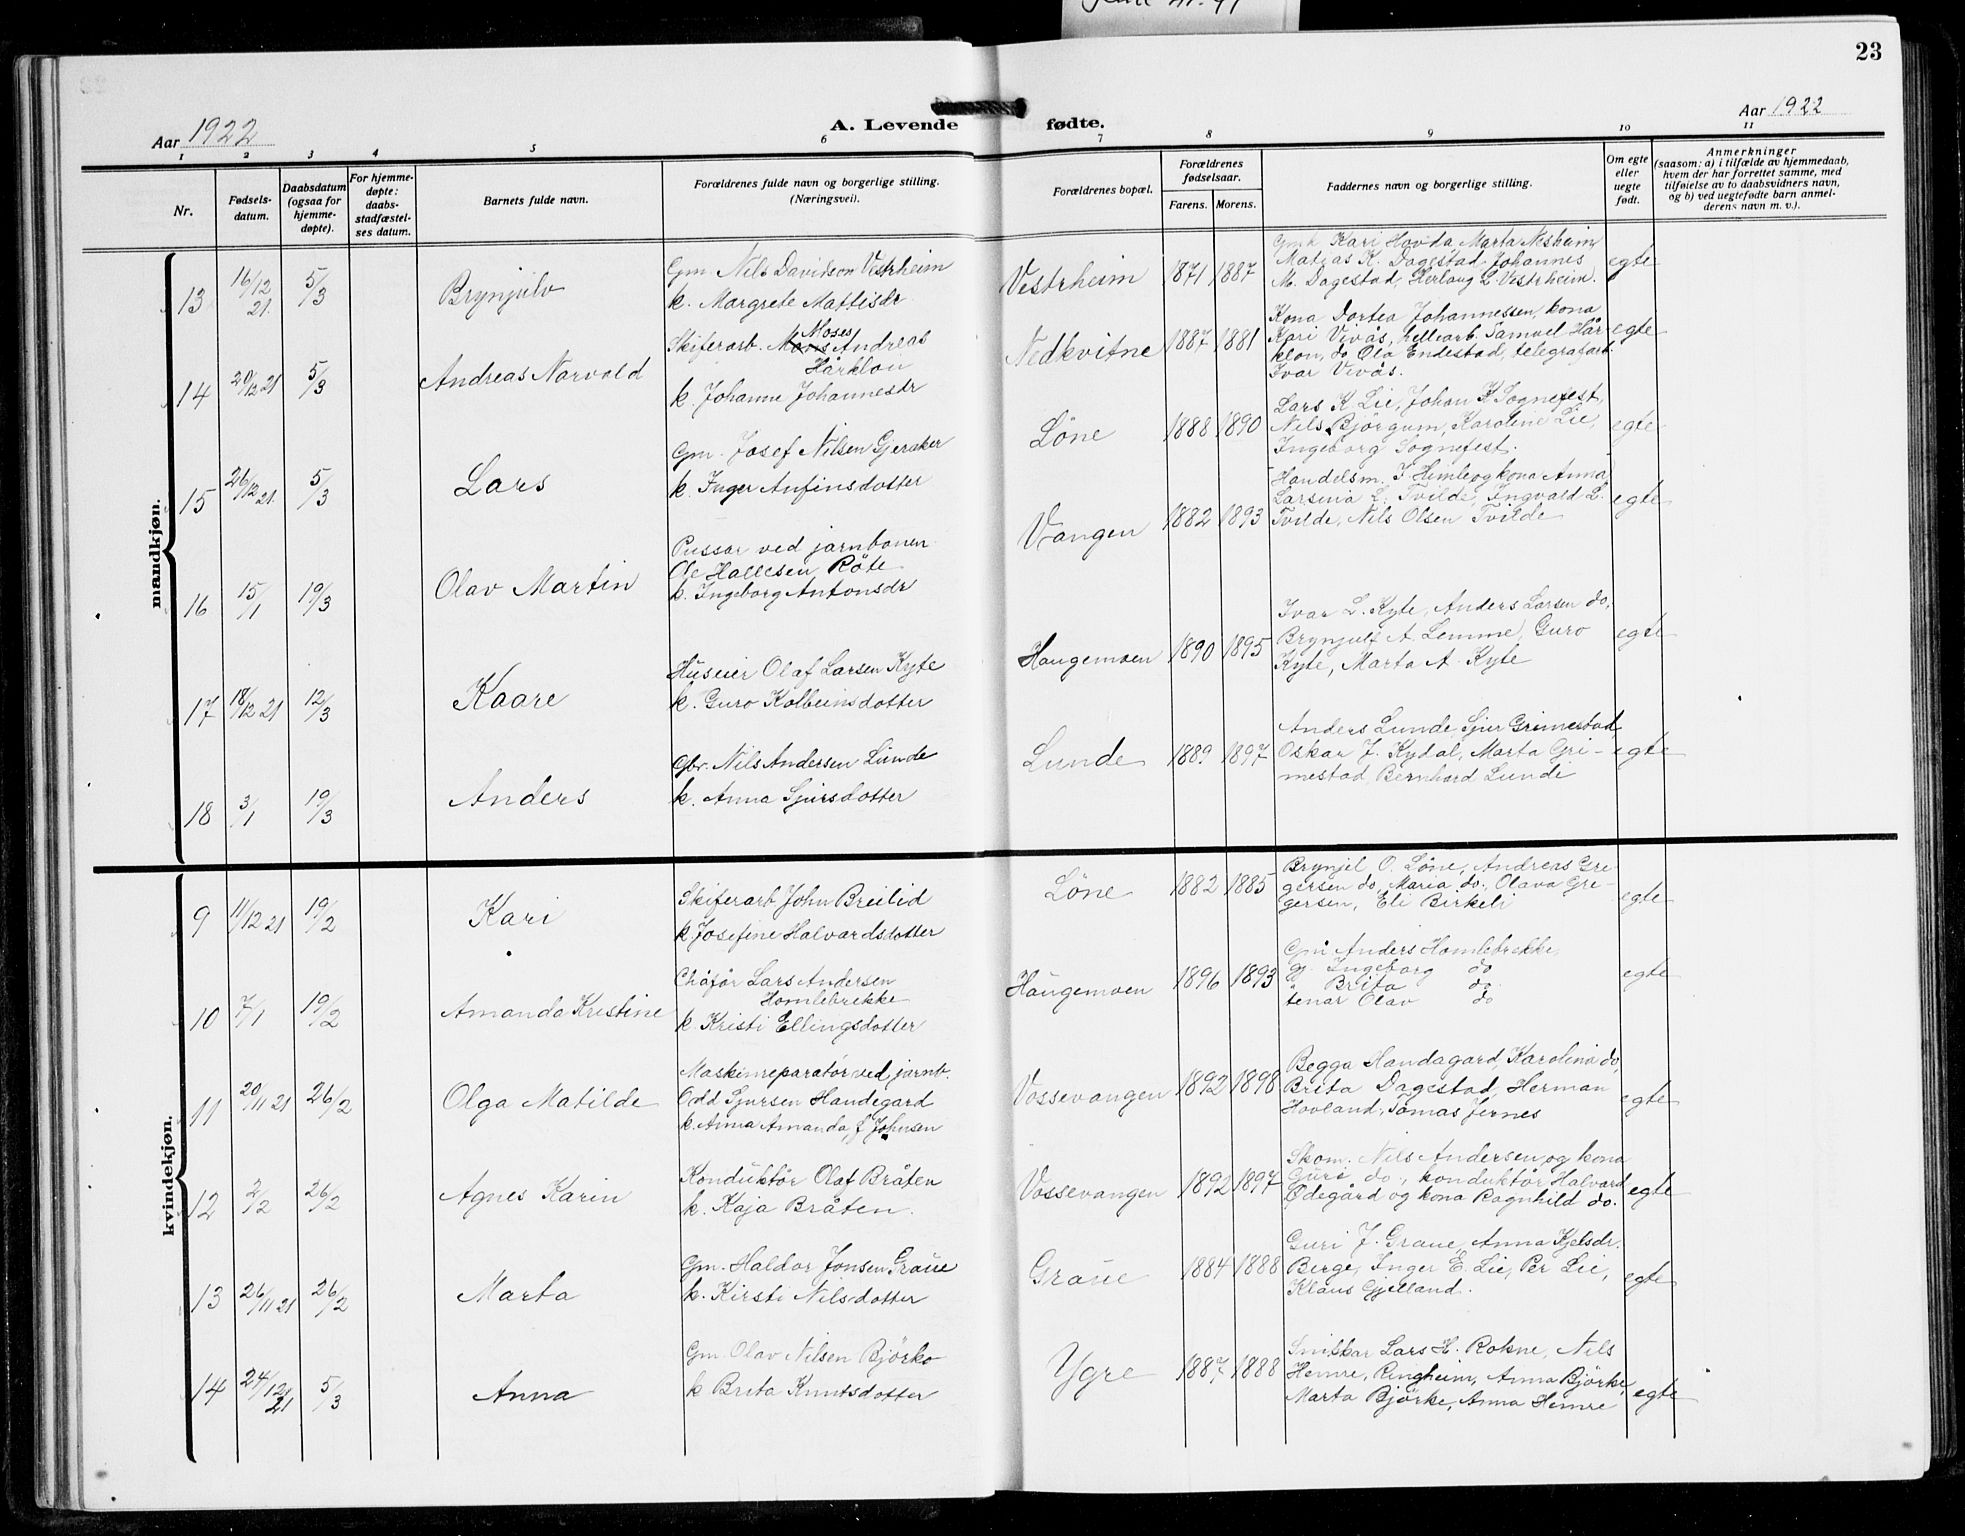 23
Aar 1922
A. Levende fødte.
Aar 1922
1 2 3 4 5 6 7 8 9 10 11
Nr.
Fødsels-
datum.
Daabsdatum
(ogsaa for
hjemme-
døpte).
For hjemme-
døpte:
daabs-
stadfæstel-
ses datum.
Barnets fulde navn.
Forældrenes fulde navn og borgerlige stilling.
(Næringsvei).
Forældrenes bopæl.
Forældrenes
fødselsaar.
Farens. Morens.
Faddernes navn og borgerlige stilling.
Om egte
eller
uegte
født.
Anmerkninger
(saasom: a) i tilfælde av hjemmedaab,
hvem der har forrettet samme, med
tilføielse av to daabsvidners navn,
og b) ved uegtefødte barn anmel-
derens navn m. v.).
mandkjøn.
13 16/12 21. 5/3 Brynjulv
Gm Nils Davidson Vestrheim
k. Margrete Mattisdr
Vestrheim 1871 1887
Gmk Kari Hovda, Marta Nesheim
Matias K. Dagestad, Johannes
M. Dagestad, Herlaug L. Vestrheim.
egte
14 20/12 21 5/3 Andreas Norvald
Skiferarb. Mons Moses Andreas
Hårklau
k. Johanne Johannesdr
Nedkvitne 1887 1881
Kona Dortea Johannessen, kona
Kari Vivås, hellearb. Samuel Hår-
klau, do Ola Endestad, telegrafarb.
Ivar Vivås.
egte
15 26/12 21. 5/3 Lars
Gm. Josef Nilsen Gjeraker
k. Inger Anfinsdotter
Löne 1888 1890
Lars K Lie, Johan K Sognefest,
Nils Björgum, Karoline Lie,
Ingeborg Sognefest.
egte
16 15/1 19/3 Olav Martin
Pussar ved jarnbanen
Ole Hallesen Röte
k. Ingeborg Antonsdr
Vangen 1882 1893
Handelsm. I Himle og kona Anna,
Larsina L. Tvilde, Ingvard L.
Tvilde, Nils Olsen Tvilde
egte
17 18/12 21 12/3 Kaare
Huseier Olaf Larsen Kyte
k. Guro Kolbeinsdotter
Haugemoen 1890 1895
Ivar L. Kyte, Anders Larsen do,
Brynjulf A. Lemme, Guro
Kyte, Marta A. Kyte
egte
18 3/1 19/3 Anders
Gbr. Nils Andersen Lunde
k. Anna Sjursdotter
Lunde 1889 1897
Anders Lunde, Sjur Grimestad
Oskar J. Kydal, Marta Gri-
mestad Bernhard Lunde
egte
kvindekjøn.
9 11/12 21 19/2 Kari
Skiferarb John Breilid
k Josefine Halvardsdotter
Löne 1882 1885
Brynjel O. Löne, Andreas Gre
gersen do, Maria do., Olava Gre-
gersen, Eli Birkeli
egte
10 7/1 19/2 Amanda Kristine
Chåfår Lars Andersen
Homlebrekke
k. Kristi Ellingsdotter
Haugemoen 1896 1893
Gm Anders Homlebrekke,
gj. Ingeborg do
" Brita do.
tenar Olav do
egte
11 20/11 21 26/2 Olga Matilde
Maskinreparatör ved jarnb.
Odd Sjursen Handegard
k. Anna Amanda f. Johnsen
Vossevangen 1892 1898
Begga Handagard, Karolina do,
Brita Dagestad, Herman
Hovland, Tomas Jernes
egte
12 2/2 26/2 Agnes Karin
Konduktör Olaf Bråten
k. Kaja Bråten.
Vossevangen 1892 1897
Skom. Nils Andersen, og kona
Guri do., konduktör Halvard
Ødegård og kona Ragnhild do.
egte
13 26/11 21 26/2 Marta
Gm. Haldor Jonsen Graue
k. Kirsti Nilsdotter
Graue 1884 1888
Guri J. Graue, Anna Kjelsdr.
Berge, Inger E. Lie, Per Lie,
Klaus Gjelland.
egte
14 24/12 21 5/3 Anna
Gm. Olav Nilsen Björke
k Brita Knutsdotter
Ygre 1887 1888
Snikkar Lars H. Rokne, Nils
Hemre, Ringheim, Anna Björke,
Marta Björke, Anna Hemre
egte